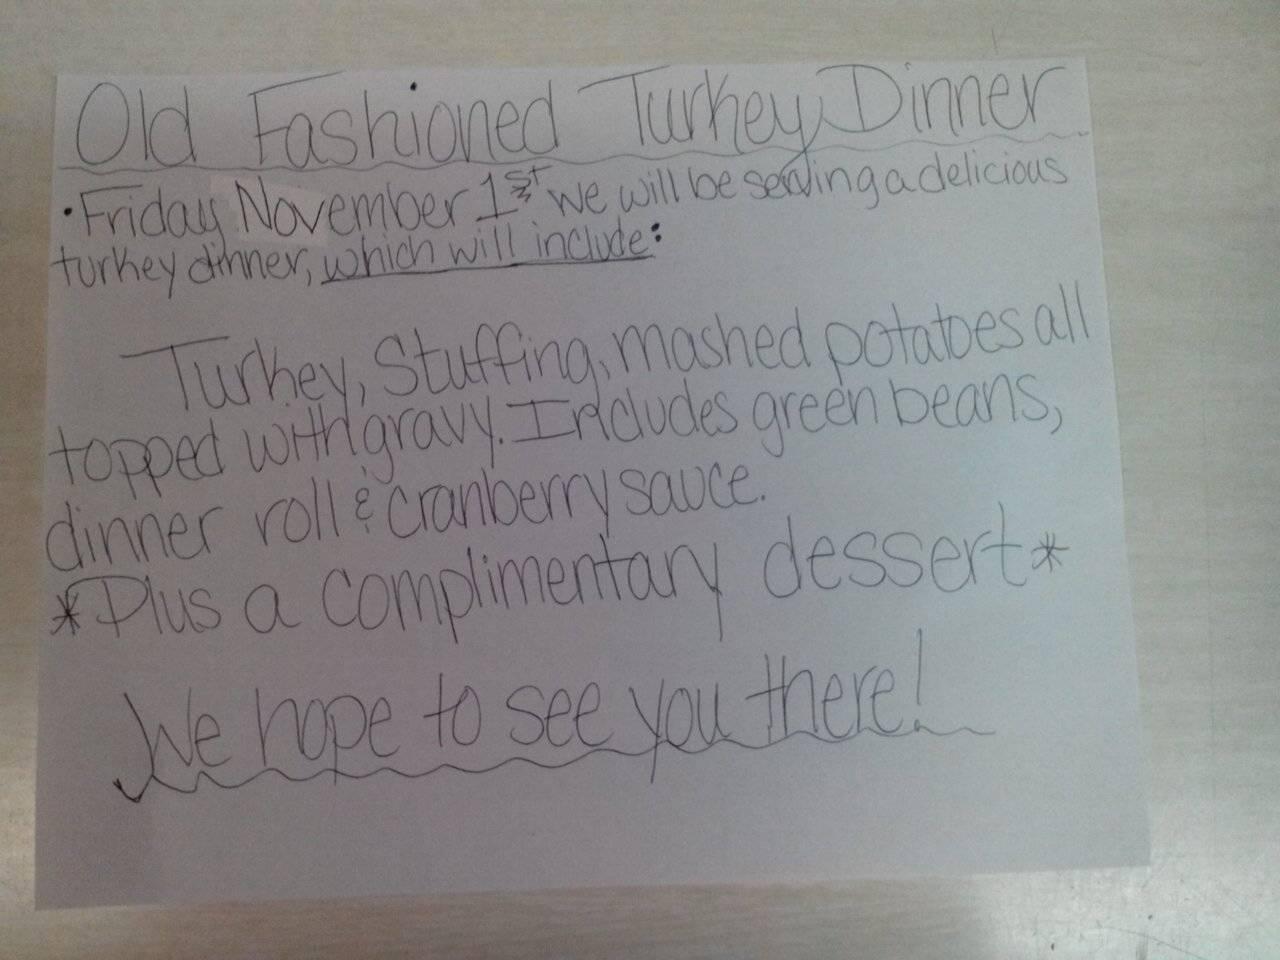 Old Fashioned Turkey Dinner
•Friday November 1st we will be serving a delicious
turkey dinner, which will include:
Turkey, Stuffing, mashed potatoes all
topped with gravy. Includes green beans,
dinner roll & cranberry sauce.
*Plus a complimentary dessert*
We hope to see you there!